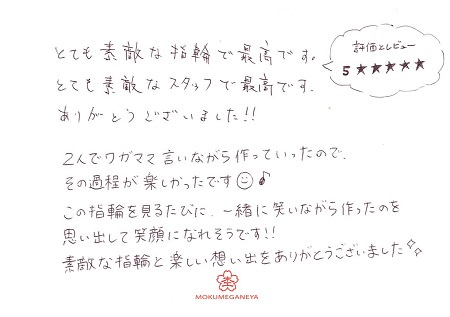 とても素敵な指輪で最高です。
評価とレビュー
5 ★★★★★
とても素敵なスタッフで最高です.
ありがとうございました!!
2人でワガママ言いながら作っていったので、
その過程が楽しかったです☺♪
この指輪を見るたびに、一緒に笑いながら作ったのを
思い出して笑顔になれそうです!!
素敵な指輪と楽しい想い出をありがとうございました✧
MOKUMEGANEYA